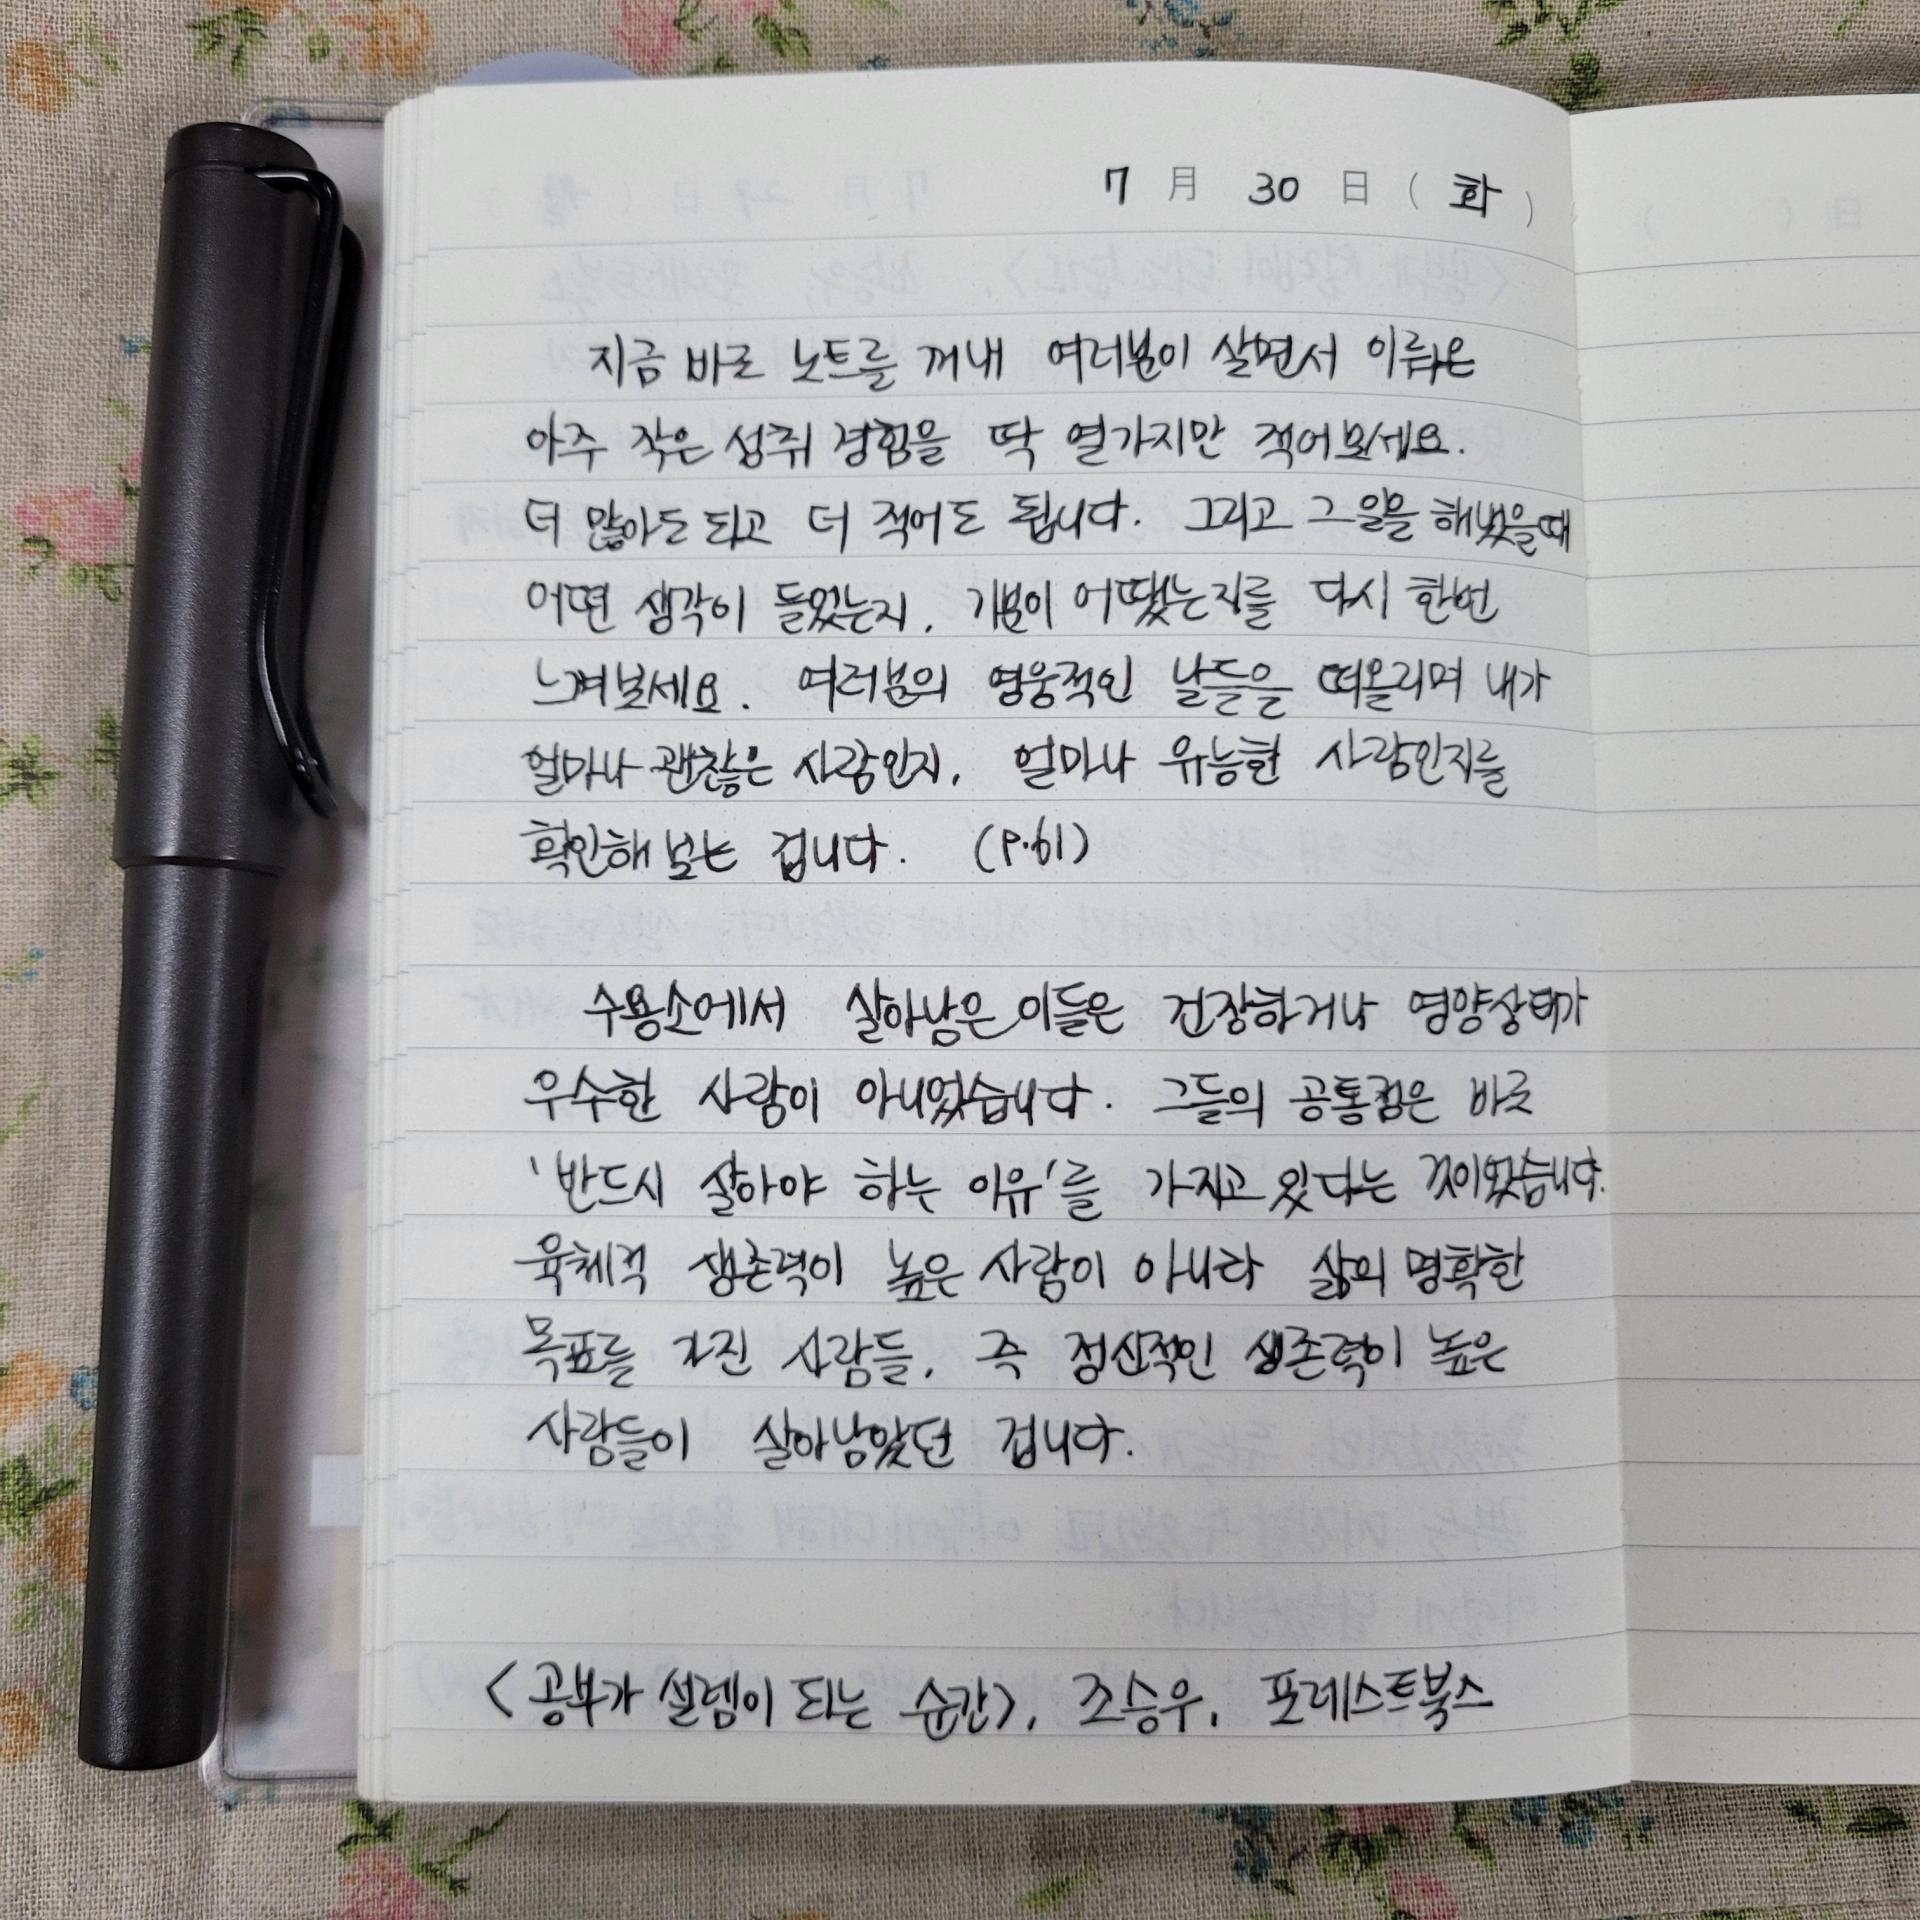 7 月 30 日 ( 화 )
지금 바로 노트를 꺼내 여러분이 살면서 이룬
아주 작은 성취 경험을 딱 열가지만 적어보세요.
더 많아도 되고 더 적어도 됩니다. 그리고 그 일을 해냈을때
어떤 생각이 들었는지, 기분이 어땠는지를 다시 한번
느껴보세요. 여러분의 영웅적인 날들을 떠올리며 내가
얼마나 괜찮은 사람인지, 얼마나 유능한 사람인지를
확인해 보는 겁니다. (P.61)
수용소에서 살아남은 이들은 건장하거나 영양상태가
우수한 사람이 아니었습니다. 그들의 공통점은 바로
'반드시 살아야 하는 이유'를 가지고 있다는 것이었습니다.
육체적 생존력이 높은 사람이 아니라 삶의 명확한
목표를 가진 사람들, 즉 정신적인 생존력이 높은
사람들이 살아남았던 겁니다.
<공부가 설렘이 되는 순간>, 조승우, 포레스트북스